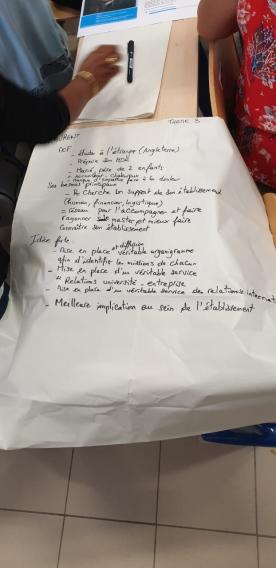 TABLE 3
LAURENT
DCF - études à l'étranger (Angleterre)
- Prépare son HDR
- Marié, père de 2 enfants
Ses besoins principaux
- Cherche un support de son établissement
(humain, financier, logistique)
pour l'accompagner et faire
rayonner master et mieux faire
connaître son établissement
Idée forte :
- Mise en place et diffusion véritable organigramme
afin d'identifier les missions de chacun
- Mise en place d'un véritable service
" Relations université - entreprise
- Mise en place d'un véritable service des relations internat
- Meilleure implication au sein de l'établissement